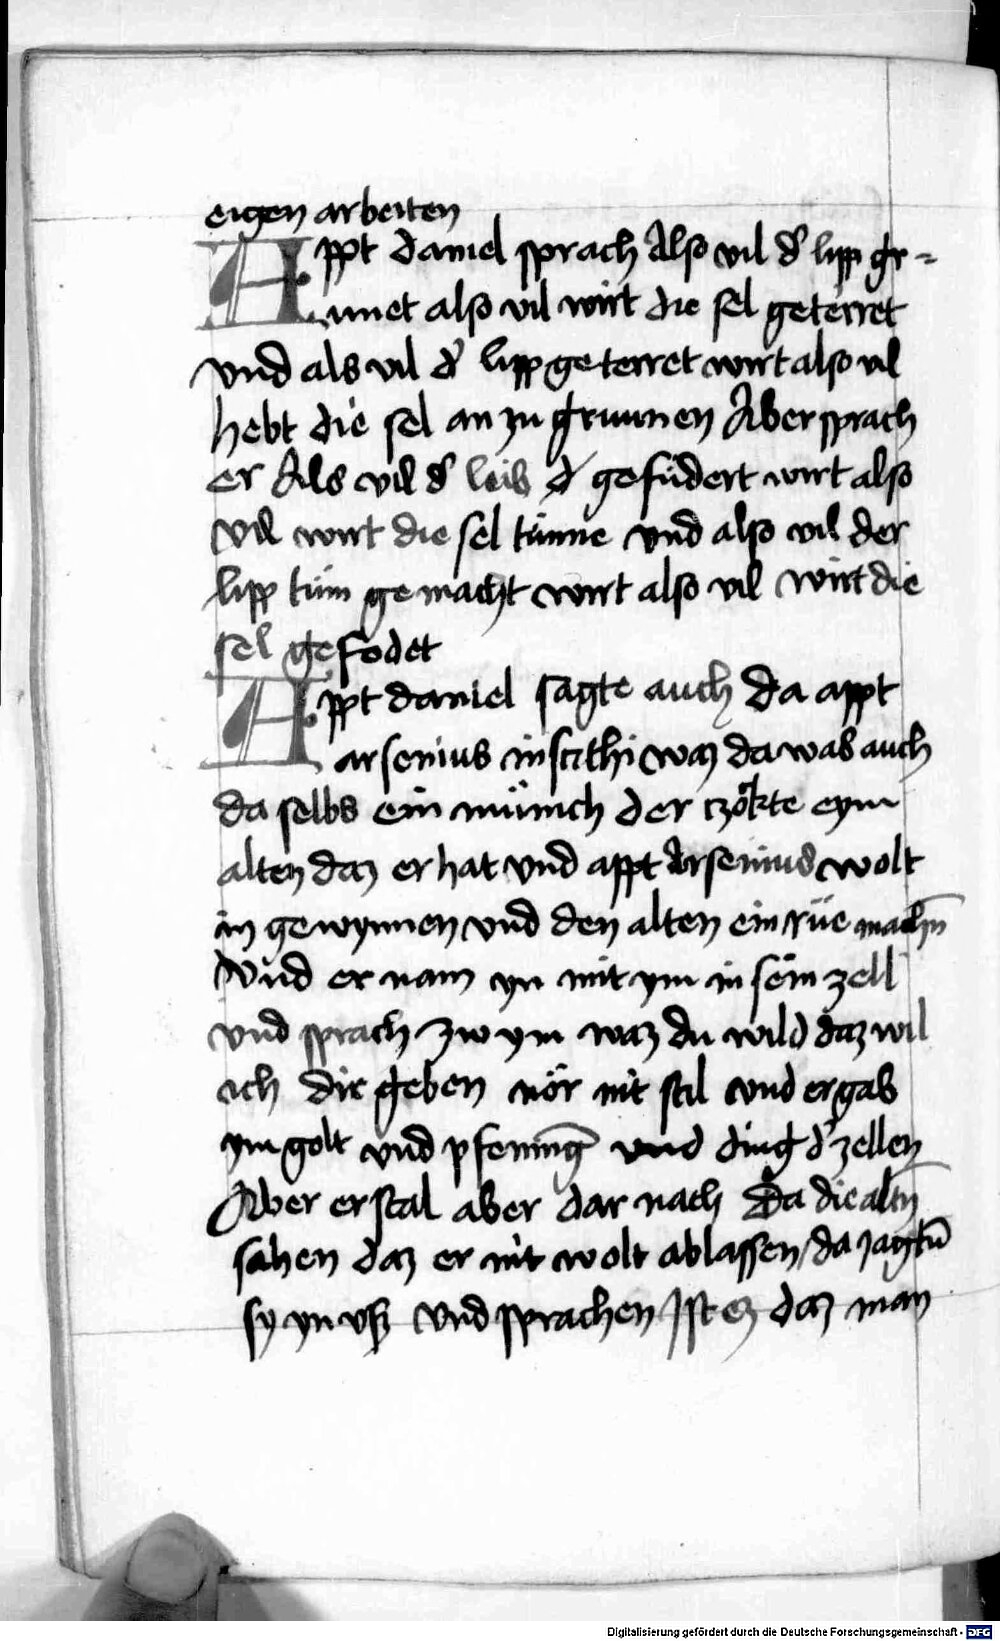 eigen arbeiten
Appt daniel sprach Also vil d' lipp gr=
unnet also vil wirt die sel geterret
vnd als vil d' lipp geterret wirt also vil
hebt die sel an zu gruunen Aber sprach
er Als vil d' leib d gefudert wirt also
vil wirt die sel tünne vnd also vil der
lipp tünn gemacht wirt also vil wirt die
sel gefodet
Appt daniel sagte auch da appt
arsenius in scithi waz da was auch
da selbs ein münich der czökte eym
alten daz er hat vnd appt Arsenius wolt
in gewynnen vnd den alten ein rüe machn̄
Vnd er nam yn mit ym in sein zell
vnd sprach zw ym waz du wild daz wil
ich dir geben nör nit stil vnd er gab
ym golt vnd pfening vnd ding d' zellen
Aber er stal aber dar nach Da die altn̄
sahen daz er nit wolt ablassen / da jagtn̄
sy yn vß vnd sprachen Ist ez daz man
Digitalisierung gefördert durch die Deutsche Forschungsgemeinschaft - DFG